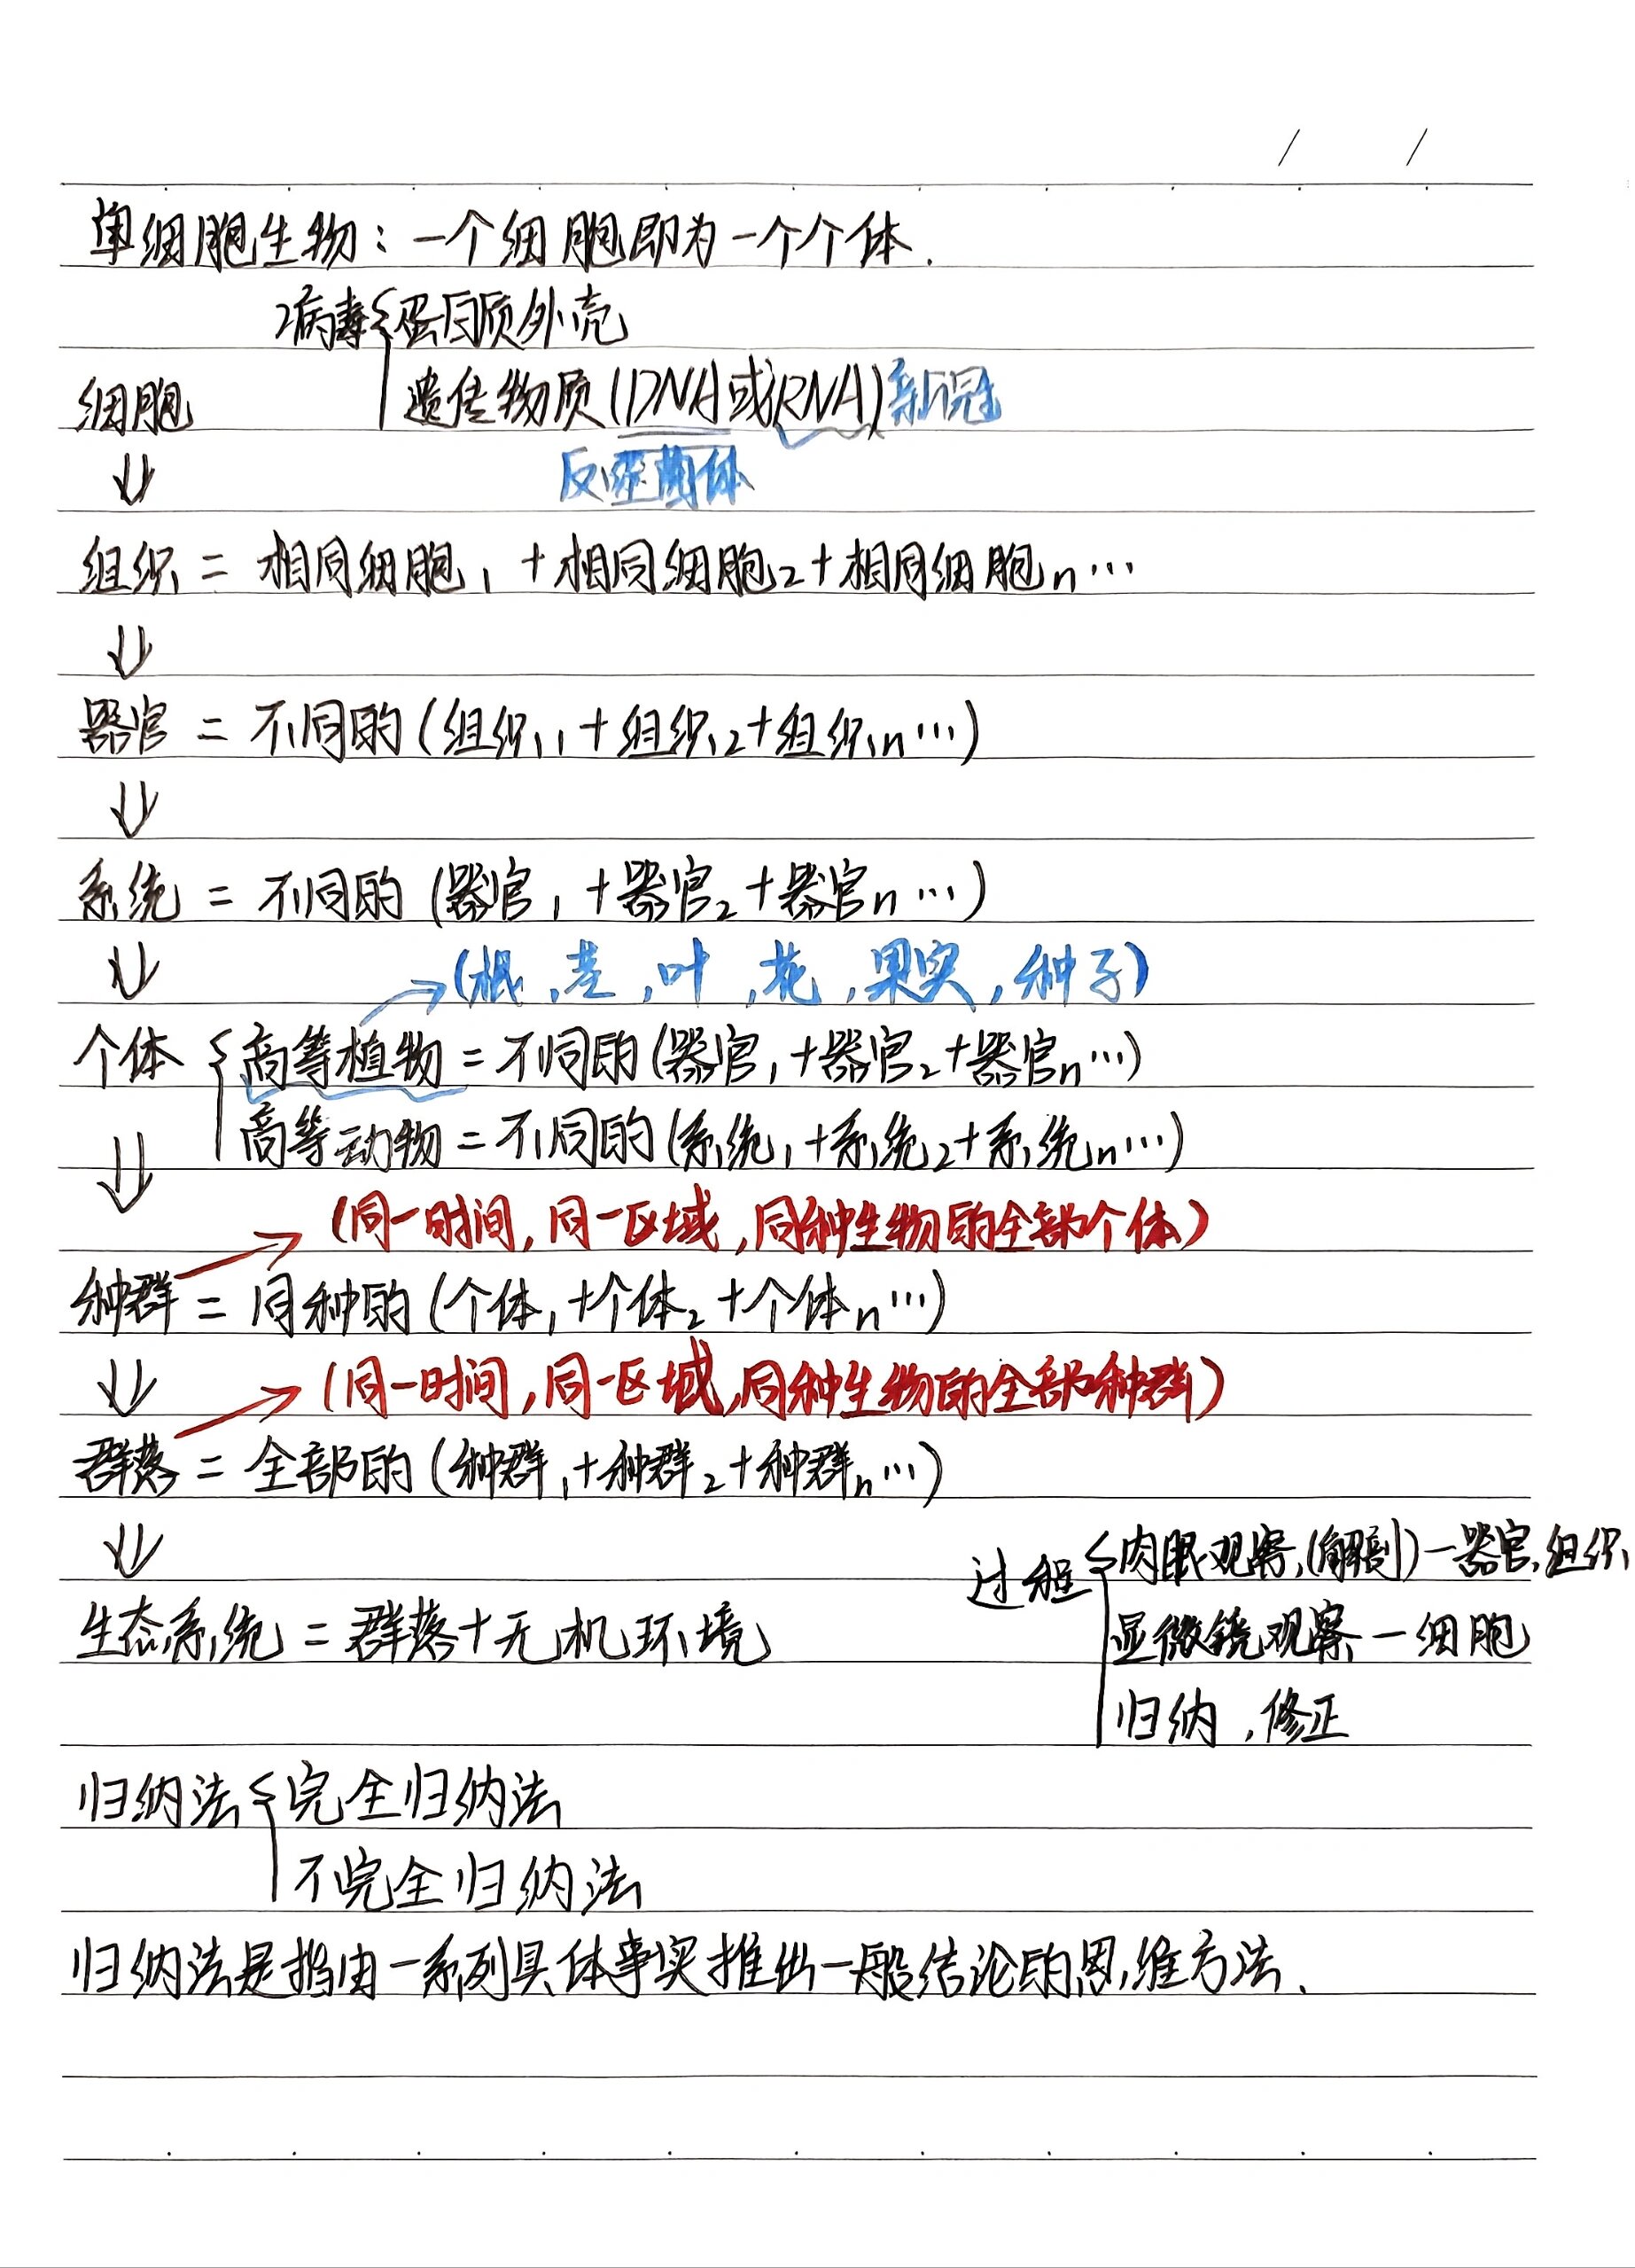 单细胞生物：一个细胞即为一个个体.
病毒{蛋白质外壳
遗传物质(DNA或RNA)新冠
细胞
⇓
组织 = 相同细胞₁ + 相同细胞₂ + 相同细胞ₙ …
⇓
器官 = 不同的(组织₁ + 组织₂ + 组织ₙ …)
⇓
系统 = 不同的(器官₁ + 器官₂ + 器官ₙ …)
⇓
→(根,茎,叶,花,果实,种子)
个体{高等植物 = 不同的(器官₁ + 器官₂ + 器官ₙ …)
高等动物 = 不同的(系统₁ + 系统₂ + 系统ₙ …)
⇓
→(同一时间,同一区域,同种生物的全部个体)
种群 = 同种的(个体₁ + 个体₂ + 个体ₙ …)
⇓
→(同一时间,同一区域,同种生物的全部种群)
群落 = 全部的(种群₁ + 种群₂ + 种群ₙ …)
⇓
生态系统 = 群落 + 无机环境
过程{肉眼观察,(解剖)一器官,组织
显微镜观察一细胞
归纳,修正
归纳法{完全归纳法
不完全归纳法
归纳法是指由一系列具体事实推出一般结论的思维方法.